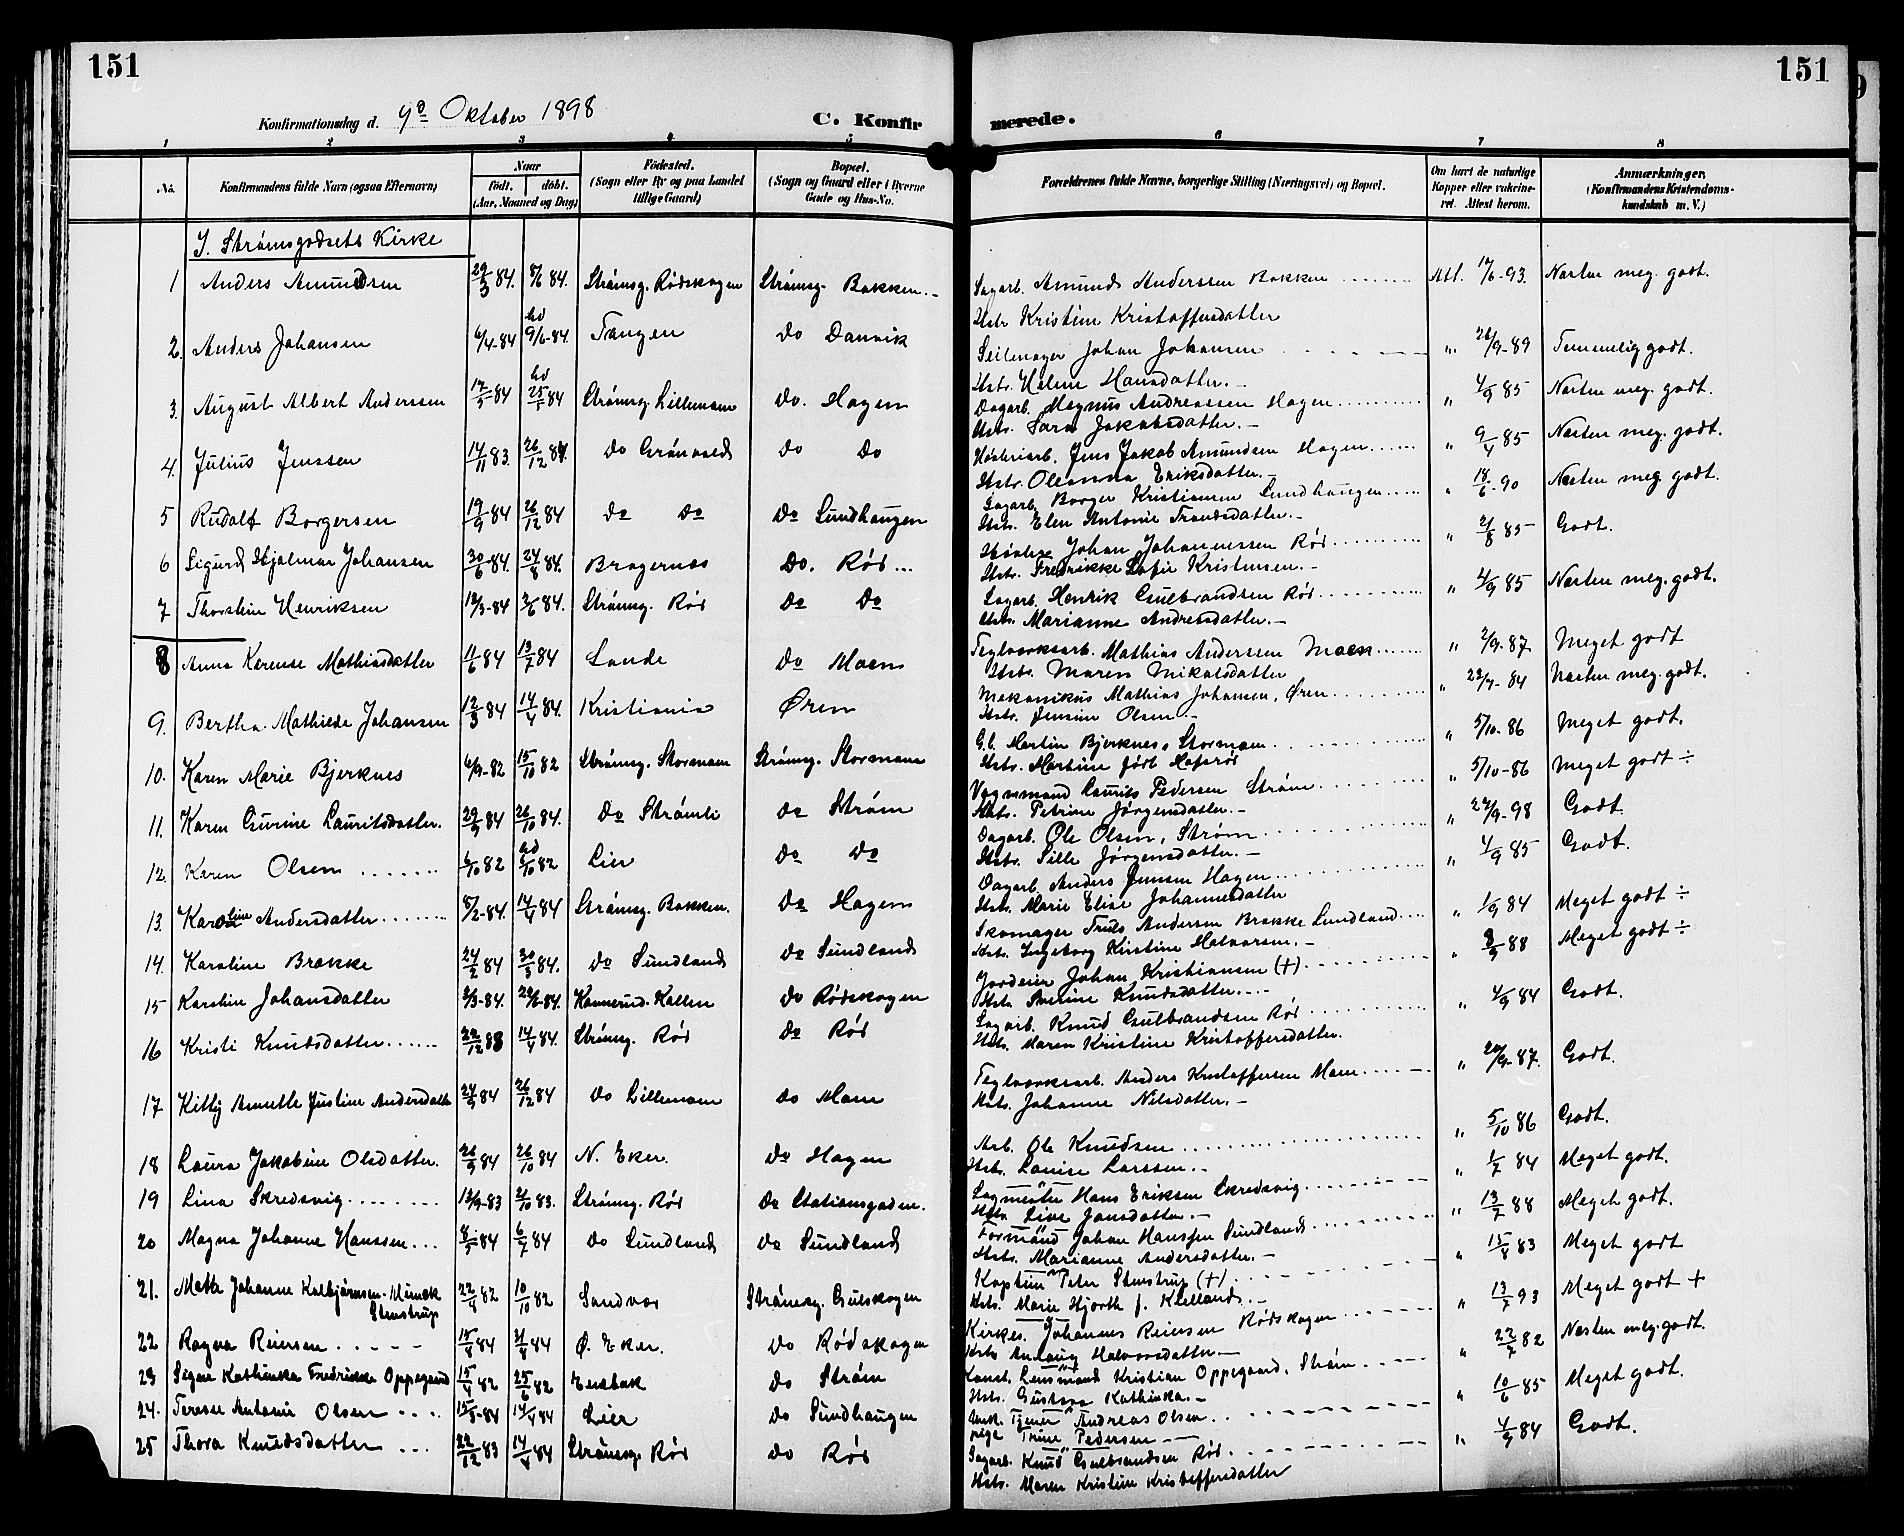 151
151
Konfirmationsdag d. 9de Oktober 1898
C. Konfir merede.
1 2 3 4 5 6 7 8
No. Konfirmandens fulde Navn (ogsaa Efternavn) Naar født. døbt. (Aar, Maaned og Dag) Fødested. (Sogn eller By og paa Landet tillige Gaard) Bopæl. (Sogn og Gaard eller i Byerne Gade og Hus-No. Forældrenes fulde Navne, borgerlige Stilling (Næringsvei) og Bopæl. Om havt de naturlige Kopper eller vakcineret. Attest herom. Anmærkninger, (Konfirmandens Kristendomskundskab m. V.)
I. Strømsgodsets Kirke
1 Anders Amundsen 29/3 84. 8/6 84. Strømsg. Rødskogen Strømsg. Bakken Sagarb. Amund Anderssen Bakken Att. 12/6-93. Næsten meg. godt.
Hstr Kristine Kristoffersdatter
2. Anders Johansen 6/4-84 9/6-84. Tangen do Danvik Seilmager Johan Johansen " 26/9-89 Temmelig godt.
Hstr. Helene Hansdatter.
3. August Albert Anderssen 12/3 84 25/5 84 Strømsg. Lillemoen do. Hagen Dagarb. Magnus Andreassen Hagen " 4/9 85 Næsten meg. godt.
Hstr. Sara Jakobsdatter.
4. Julius Jenssen 14/11 83. 26/12 84. do Grønvold do do Høvleriarb. Jens Jakob Amundsen Hagen " 9/4 85 Næsten meg. godt.
Hstr. Oleanna Eriksdatter.
5 Rudolf Borgersen 19/9 84 26/12 84 do do do Sundhaugen Sagarb. Borger Kristiansen Sundhaugen " 18/6-90 Næsten meg. godt.
Hstr. Elen Antonie Trondsdatter.
6 Sigurd Hjalmar Johansen 30/6 84. 24/8 84. Bragernæs do. Rød Johan Johannessen Rød " 2/8 85 Godt.
Hstr. Fredrikke Sofie Kristensen.
7 Thorstein Henriksen 12/3-84 2/6 84. Strømsg. Rød do do Sagarb. Henrik Gulbrandsen Rød " 4/9 85 Næsten meg. godt.
Hstr. Marianne Andreasdatter.
8 Anna Karense Mathiasdatter 11/6 84 13/7 84 Sande do Moen Teglværksarb. Mathias Anderssen Moen " 2/9-87. Meget godt
Hstr. Maren Mikalsdatter
9. Bertha Mathilde Johansen 12/3 84 14/4 84. Kristiania Øren Mekanikus Mathias Johansen, Øren " 22/7-84 Næsten meg. godt.
Hstr. Jensine Olsen.
10. Karen Marie Bjerknes 6/9-82 15/10 82 Strømsg. Stormoen Strømsg. Stormoen G.b. Martin Bjerknes, Stormoen " 5/10-86 Meget godt.
Hstr. Martine født Hafsrød
11. Karen Gurine Lauritsdatter. 29/9 84 26/10 84. do Strømli do Strøm Vognmand Laurits Pedersen Strøm " 5/10-86 Meget godt ÷
Hstr. Petrine Jørgensdatter.
12. Karen Olsen 6/10 82 82 Lier do do Dagarb. Ole Olsen, Strøm " 24/9-98 Godt.
Hstr. Sille Jørgensdatter.
13. Karoline Andersdatter 8/2-84. 14/4 84 Strømsg. Bakken. do Hagen Dagarb. Anders Jensen Hagen " 4/9 85 Godt.
Hstr. Marie Elise Johannesdatter
14. Karoline Brække 24/2 84 30/3 84. do Sundland do Sundland Skomager Truls Andersen Brække Sundland " 1/9 84 Meget godt ÷
Hstr. Ingeborg Kristine Halvorsen.
15 Karstine Johansdatter 2/3-84. 29/6-84. do Rødskogen Jordeier Johan Kristiansen (+) " 8/9 88 Meget godt ÷
Hstr. Severine Knudsdatter.
16 Kristi Knudsdatter 22/12 83 14/4 84. Strømsg. Rød do Rød Sagarb. Knud Gulbrandsen Rød " 4/9 84 Godt.
Hstr. Maren Kristine Kristoffersdatter.
17 Kitty Annette Justine Andersdatter 24/9 84 26/12 84 do Lillemoen do Moen Teglværksarb. Anders Kristoffersen Moen " 20/9-87. Godt.
Hstr. Johanne Nilsdatter.
18 Laura Jakobine Olsdatter. 26/9 84 26/10 84 N. Eker. do Hagen Arb. Ole Knudsen " 5/10 86 Godt.
Hstr. Louise Larssen.
19 Lina Skredsvig 12/9-83 2/10 83. Strømsg. Rød do Stationsgaden. Sagmester Hans Eriksen Skredsvig " 1/7 84 Meget godt.
Hstr. Live Jonsdatter.
20 Magna Johanne Hanssen 8/5 84 6/7 84 do Sundland do Sundland Formand Johan Hanssen Sundland " 13/7 88 Meget godt.
Hstr. Marianne Andersdatter.
21. Mette Johanne Kolbjørnsen Minock Stenstrup 22/4 82 10/10 82 Sandvær Strømsg. Gulskogen Kaptein Peter Stenstrup (+) " 15/8 83 Meget godt
Hstr. Marie Hjorth f. Kielland.
22 Ragna Reiersen 15/4 84 31/8 84 Ø. Eker. do Rødskogen Kirkes. Johannes Reiersen Rødskogen " 13/7 93 Meget godt +
Hstr Anlaug Halvorsdatter
23 Signe Kathinka Fredrikke Oppegaard 15/4 82 25/6 82 Enebak do Strøm Const. Lensmand Kristian Oppegaard, Strøm " 22/7 82 Næsten meg. godt.
Hstr. Gustava Kathinka.
24. Terese Antonie Olsen 15/3-84 14/4 84 Lier do Sundhaugen Tjener Andreas Olsen " 10/6 85 Meget godt.
pige Trine Pedersen
25 Thora Knudsdatter 22/12 83 14/4 84 Strømsg. Rød do Rød Sagarb. Knud Gulbrandsen Rød. " 4/9 84 Godt.
Hstr. Maren Kristine Kristoffersdatter